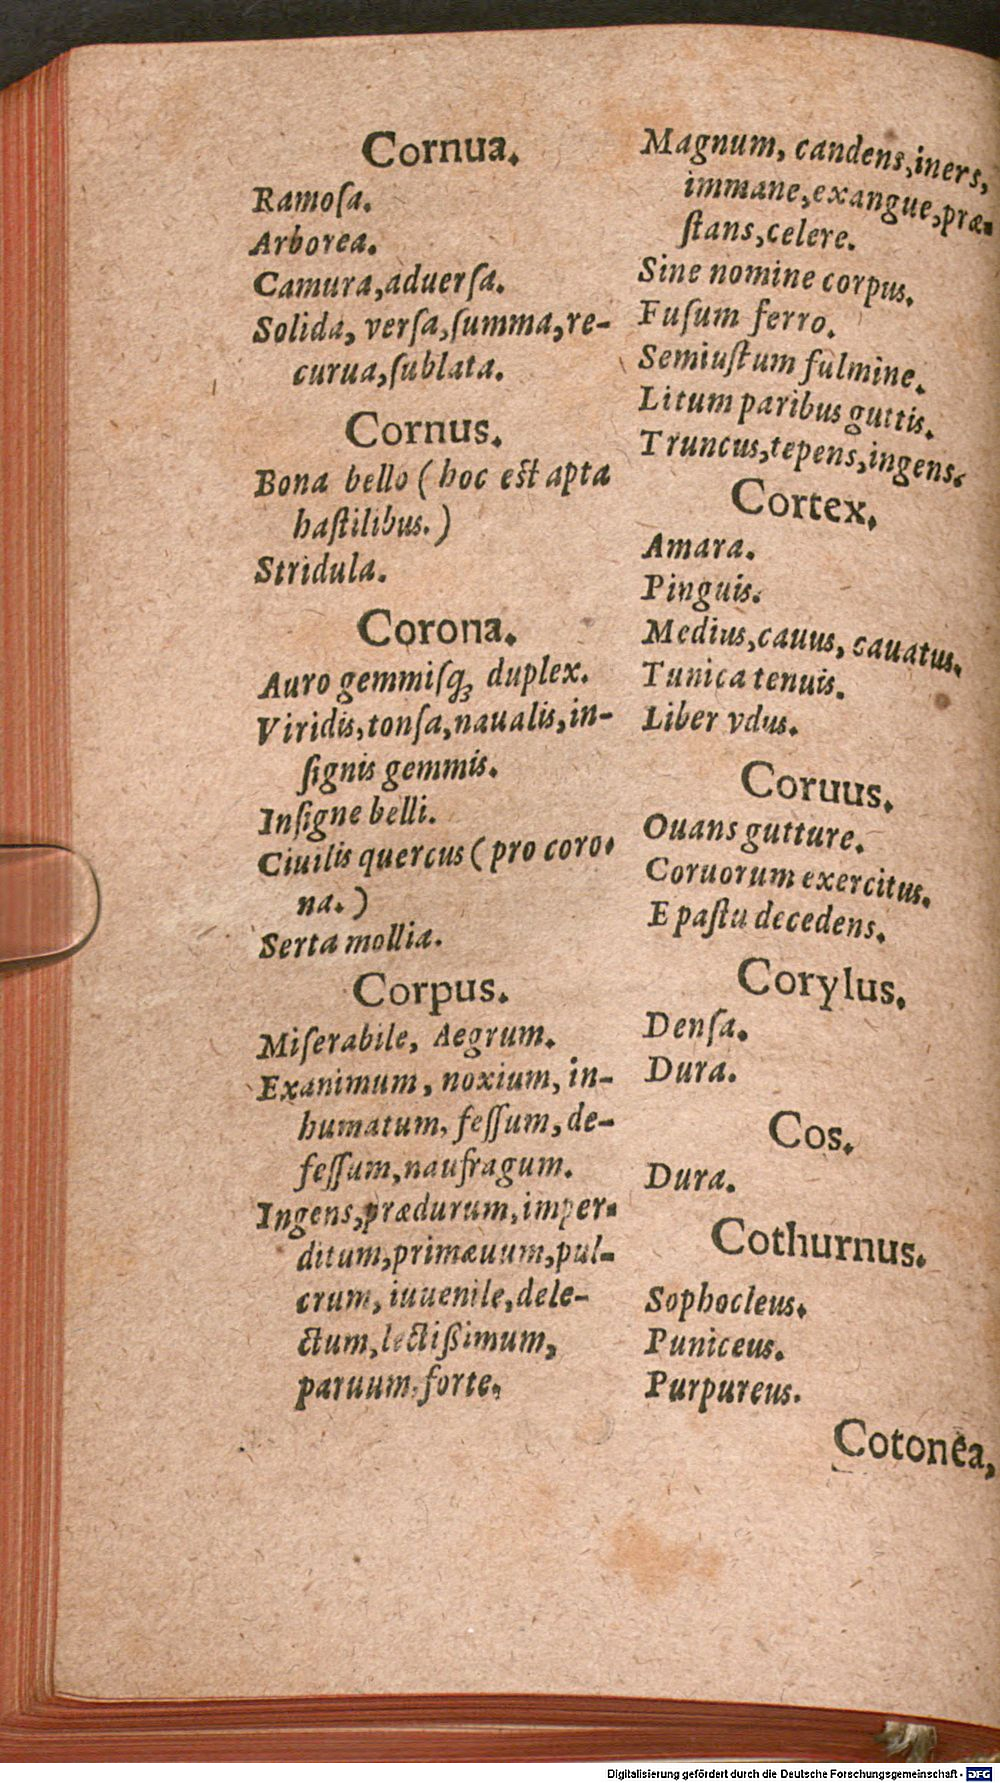 Cornua.
Ramoſa.
Arborea.
Camura,aduerſa.
Solida, verſa,ſumma,re-
curua,ſublata.
Cornus.
Bona bello (hoc est apta
haſtilibus.)
Stridula.
Corona.
Auro gemmiſq; duplex.
Viridis,tonſa,naualis,in-
ſignis gemmis.
Inſigne belli.
Ciuilis quercus (pro coro-
na.)
Serta mollia.
Corpus.
Miſerabile, Aegrum.
Exanimum, noxium, in-
humatum, feſſum, de-
feſſum,naufragum.
Ingens,prædurum,imper-
ditum,primæuum,pul-
crum, iuuenile,dele-
ctum,lectißimum,
paruum,forte.
Magnum, candens,iners,
immane,exangue,præ-
ſtans,celere.
Sine nomine corpus.
Fuſum ferro.
Semiuſtum fulmine.
Litum paribus guttis.
Truncus,tepens,ingens.
Cortex.
Amara.
Pinguis.
Medius,cauus, cauatus.
Tunica tenuis.
Liber vdus.
Coruus.
Ouans gutture.
Coruorum exercitus.
E paſtu decedens.
Corylus.
Denſa.
Dura.
Cos.
Dura.
Cothurnus.
Sophocleus.
Puniceus.
Purpureus.
Cotonea,
Digitalisierung gefördert durch die Deutsche Forschungsgemeinschaft - DFG